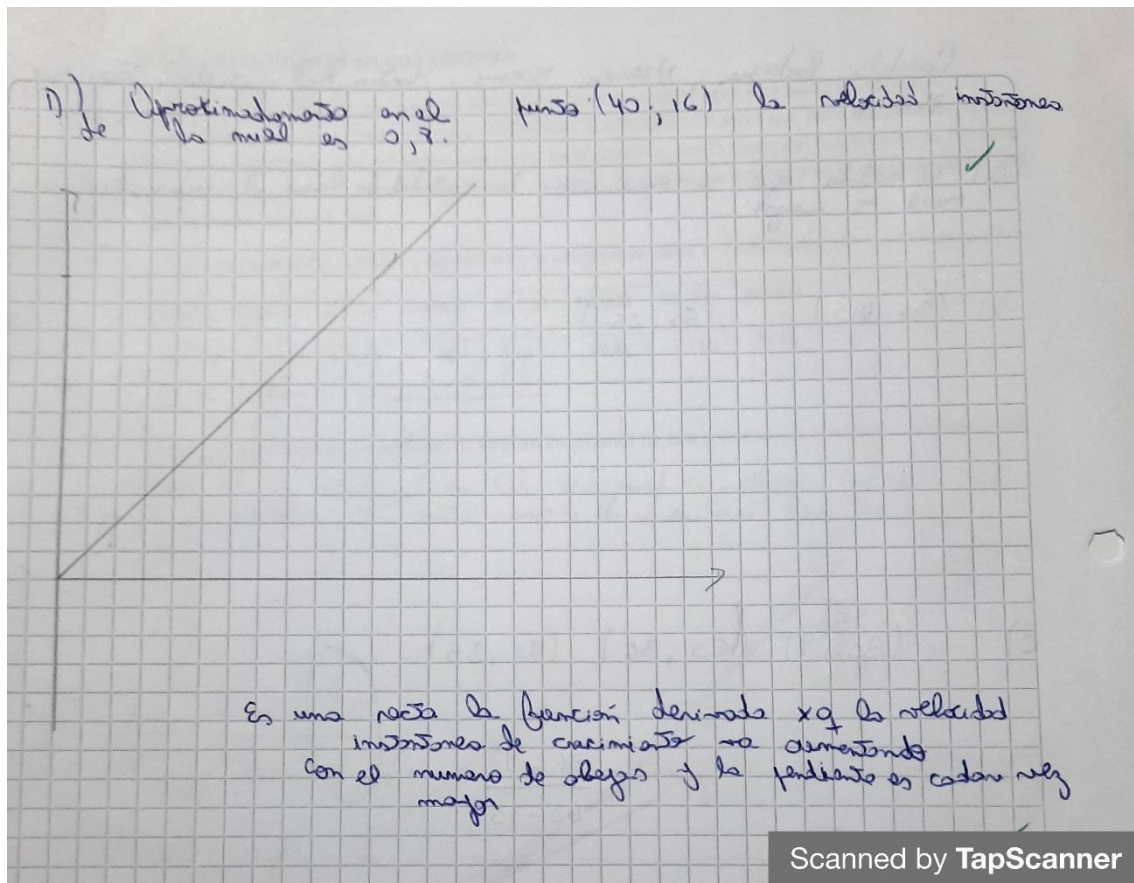 D) Aproximadamente en el punto (40; 16) la velocidad instantanea
de la miel es 0,8.
Es una recta la función derivada xq la velocidad
instantanea de crecimiento va aumentando
con el numero de abejas y la pendiente es cada vez
mayor
Scanned by TapScanner